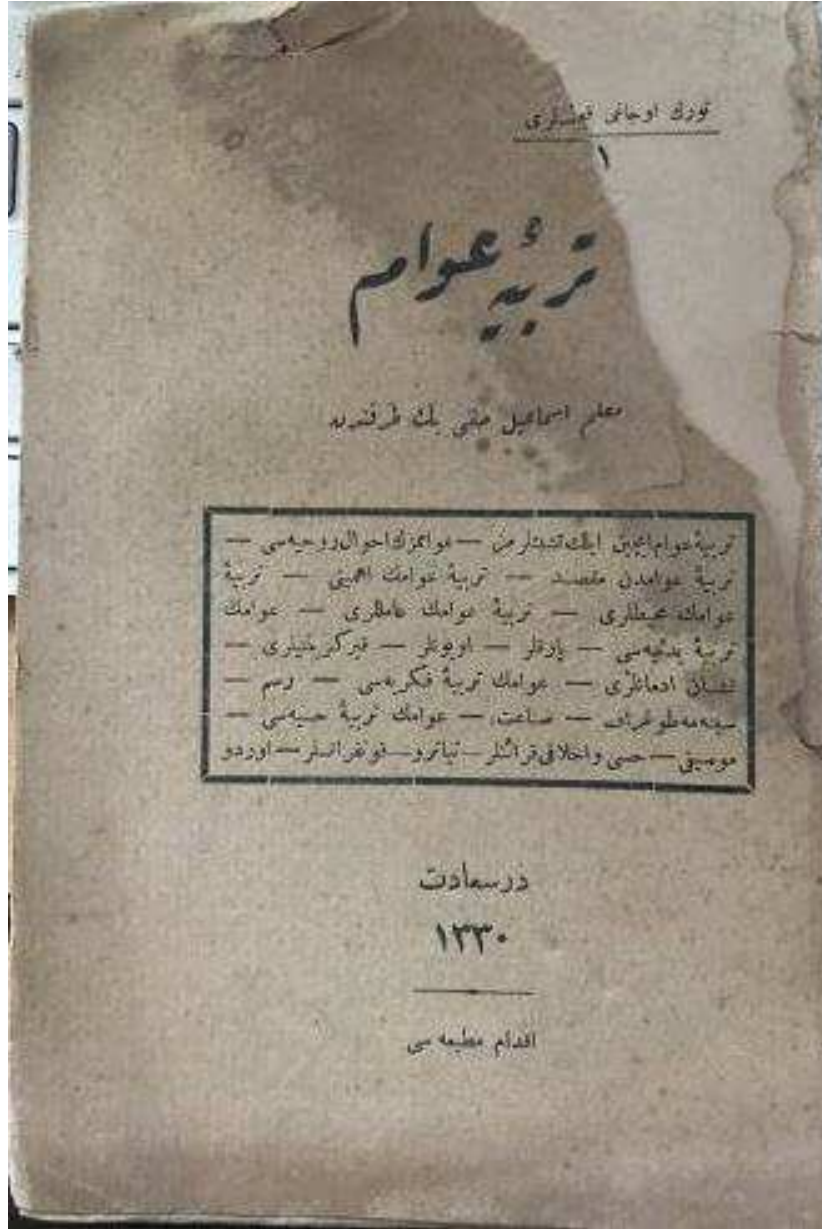 تورك اوجاغی قونفرانسلری
١
تربیهٔ عوام
معلم اسماعیل حقی بك طرفندن
تربیهٔ عوام ایچین ایلك تشبثلرمز — عوامزك احوال روحیه‌سی —
تربیهٔ عوامدن مقصد — تربیهٔ عوامك اهمیتی — تربیهٔ
عوامك محیطلری — تربیهٔ عوامك عاملری — عوامك
تربیهٔ بدنیه‌سی — پارقلر — اویونلر — قیر كزینتیلری —
نشان ادمانلری — عوامك تربیهٔ فكریه‌سی — رسم —
سینه‌مه‌طوغراف — صناعت — عوامك تربیهٔ حسیه‌سی —
موسیقی — حسی و اخلاقی قرائتلر — تیاترو — قونفرانسلر — اوردو
درسعادت
١٣٣٠
اقدام مطبعه‌سی